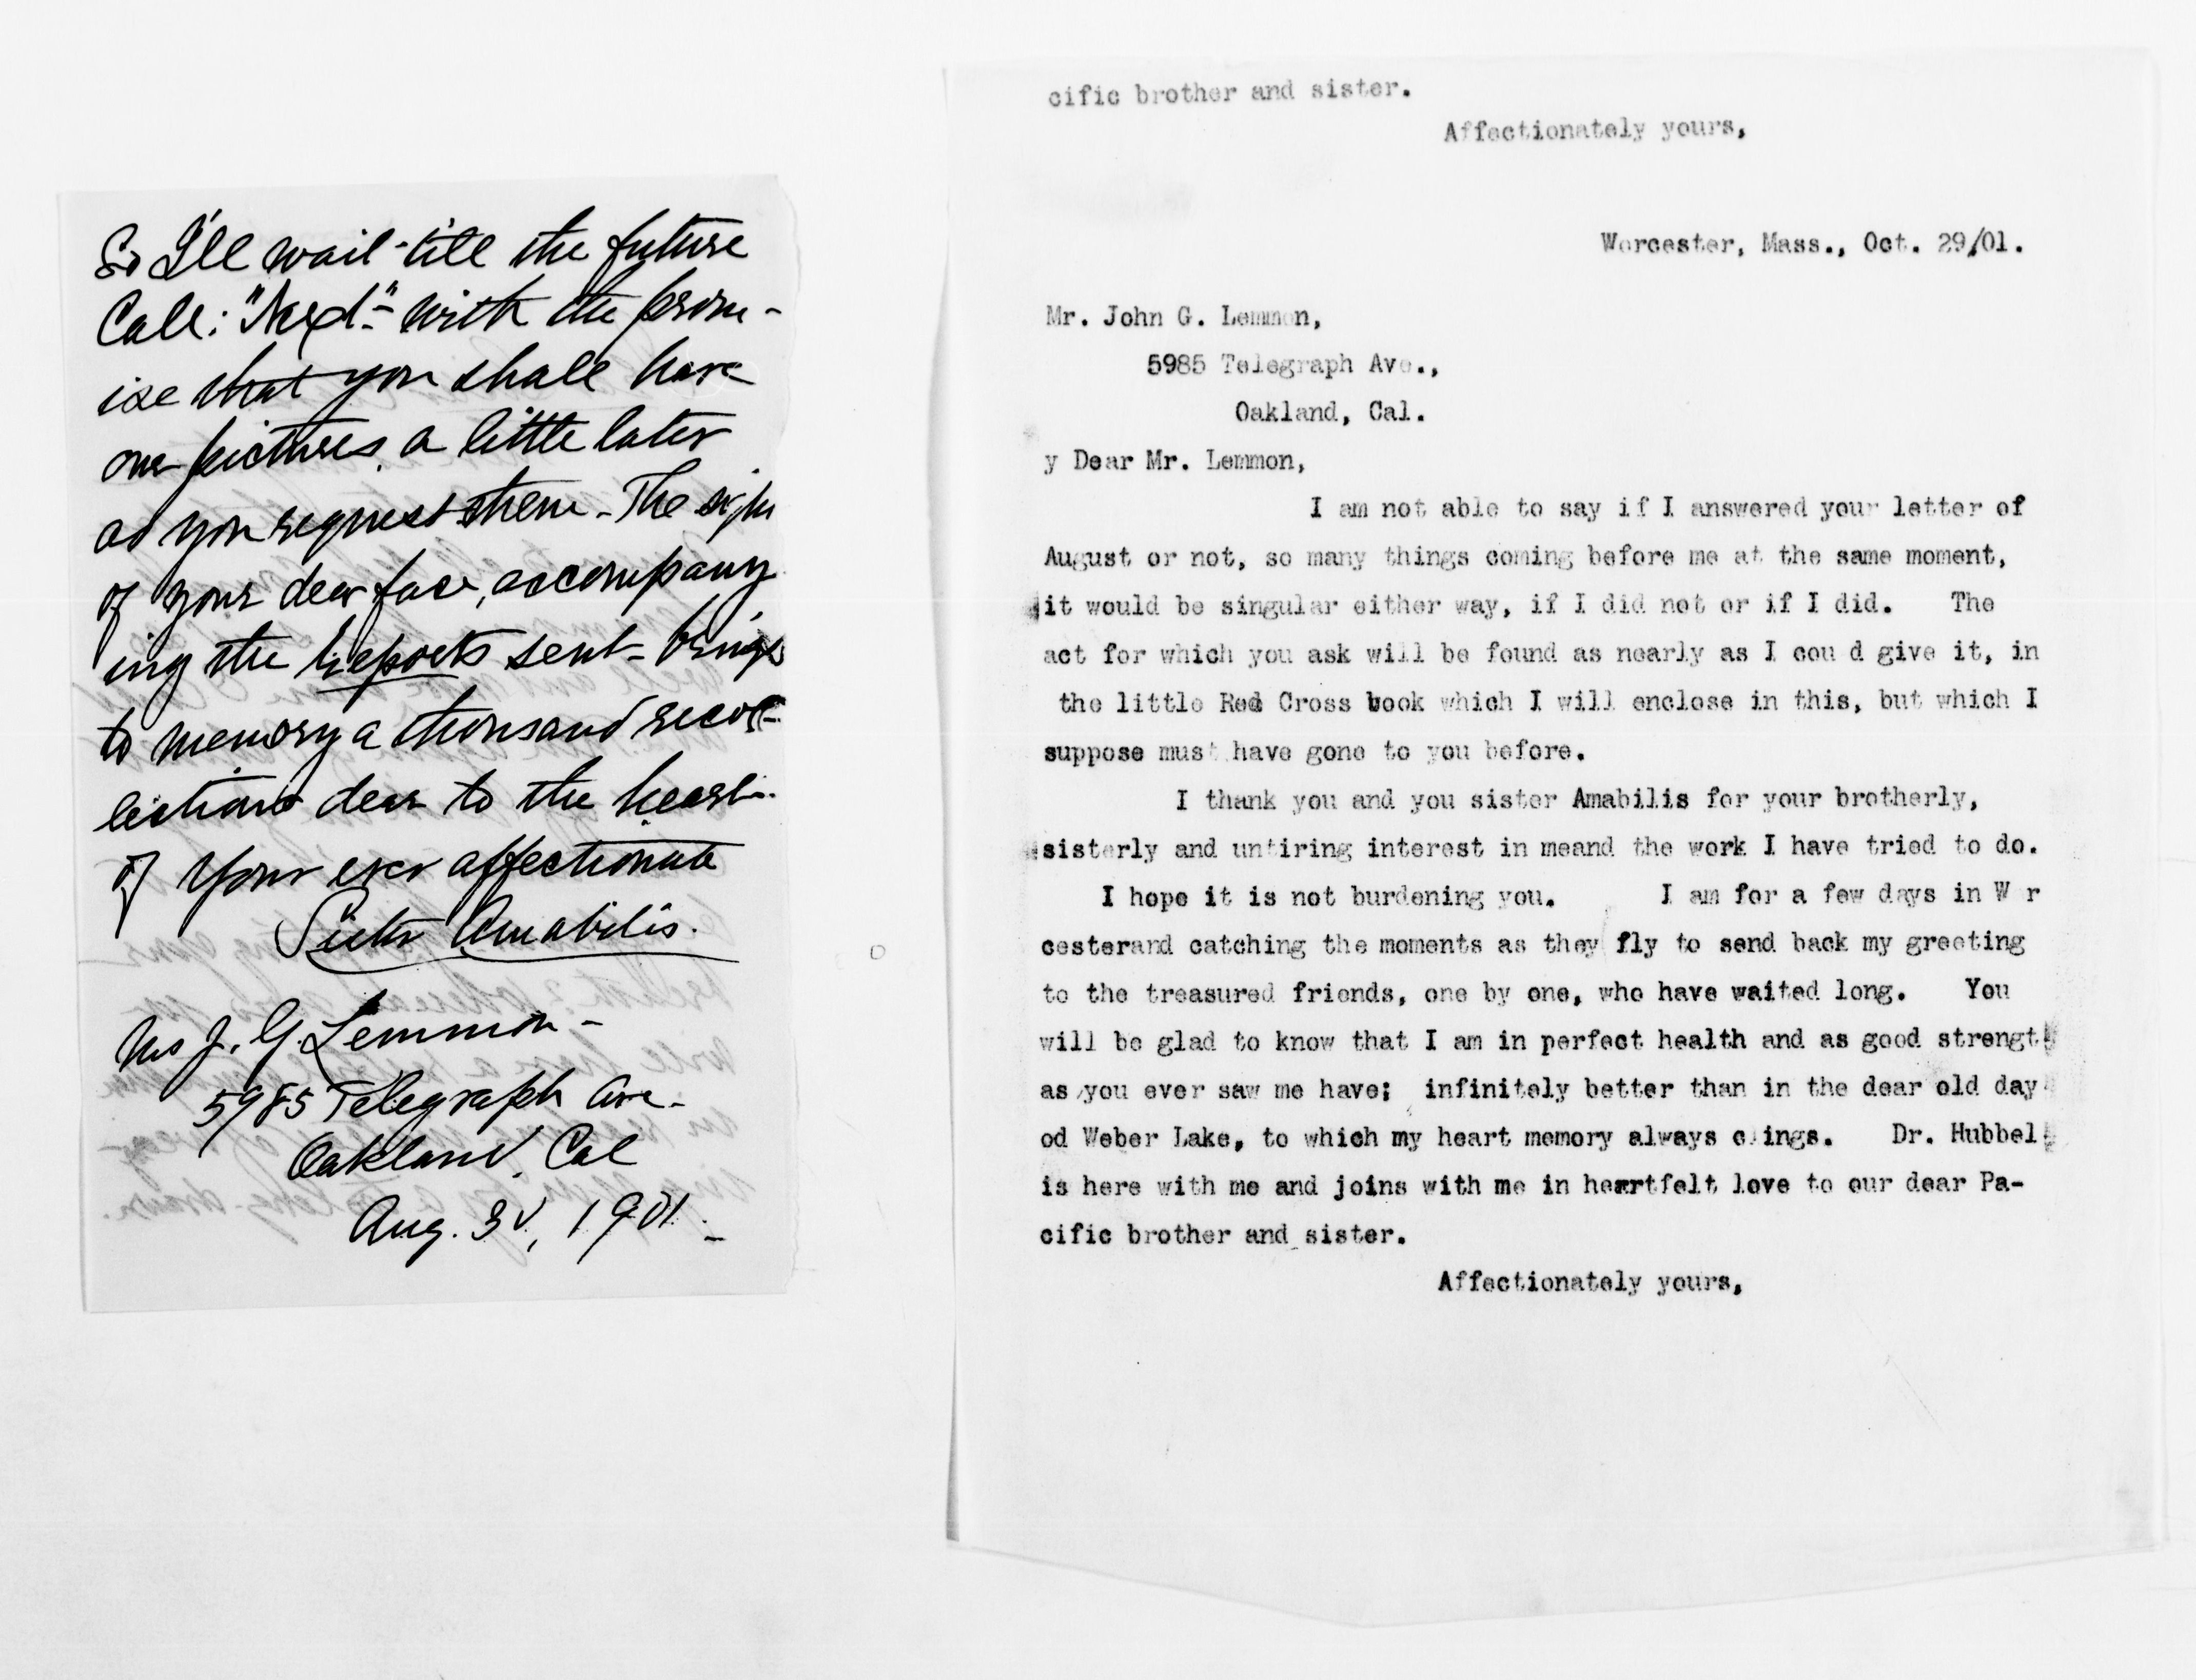 So I'll wait till the future
Call: "Next" with the prom-
ise that you shall have
our pictures a little later
as you request them - The sight
of your dear face, accompany
ing the reports sent - brings
to memory a thousand recol-
lections dear to the heart
of your ever affectionate
Sister Amabilis.
Mrs J. G. Lemmon -
5985 Telegraph Ave -
Oakland, Cal
Aug. 30, 1901. -
cific brother and sister.
Affectionately yours,
Worcester, Mass., Oct. 29/01.
Mr. John G. Lemmon,
5985 Telegraph Ave.,
Oakland, Cal.
y Dear Mr. Lemmon,
I am not able to say if I answered your letter of
August or not, so many things coming before me at the same moment,
it would be singular either way, if I did not or if I did. The
act for which you ask will be found as nearly as I cou d give it, in
the little Red Cross book which I will enclose in this, but which I
suppose must have gone to you before.
I thank you and you sister Amabilis for your brotherly,
sisterly and untiring interest in meand the work I have tried to do.
I hope it is not burdening you. I am for a few days in W r
cesterand catching the moments as they fly to send back my greeting
to the treasured friends, one by one, who have waited long. You
will be glad to know that I am in perfect health and as good strength
as you ever saw me have; infinitely better than in the dear old day
od Weber Lake, to which my heart memory always clings. Dr. Hubbell
is here with me and joins with me in heartfelt love to our dear Pa-
cific brother and sister.
Affectionately yours,